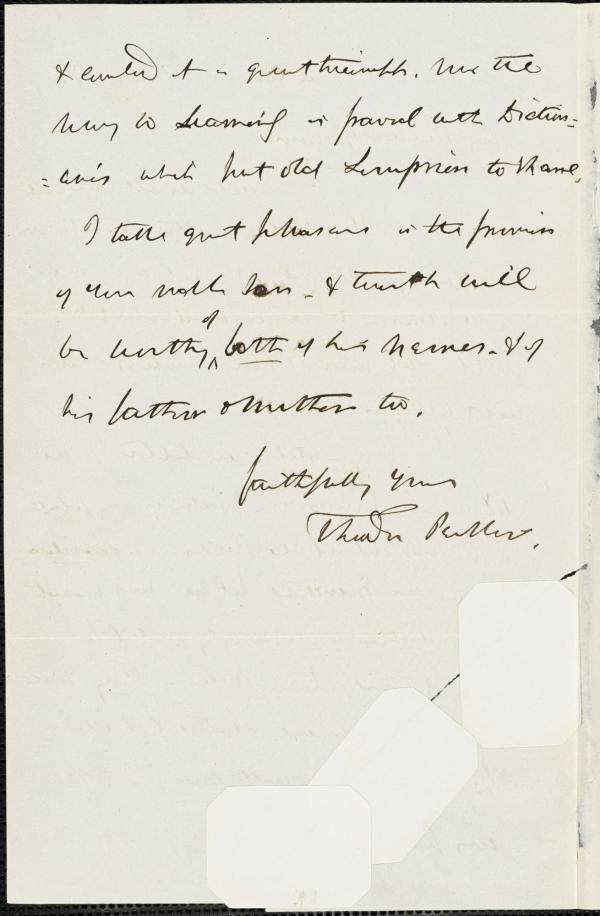 & counted it a great triumph. Now the
way to Learning is paved with Diction=
=aries which put old Lempriere to shame.
I take great pleasure in the promise
of your noble son - & trust he will
be worthy of both of his names - & of
his father & mother too.
faithfully yours
Theodore Parker.